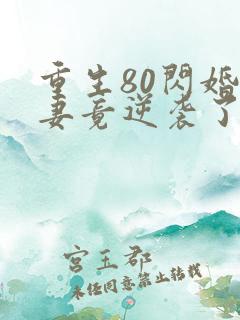 重生80閃婚
妻竟逆袭了
宫玉郡
未经同意禁止转载